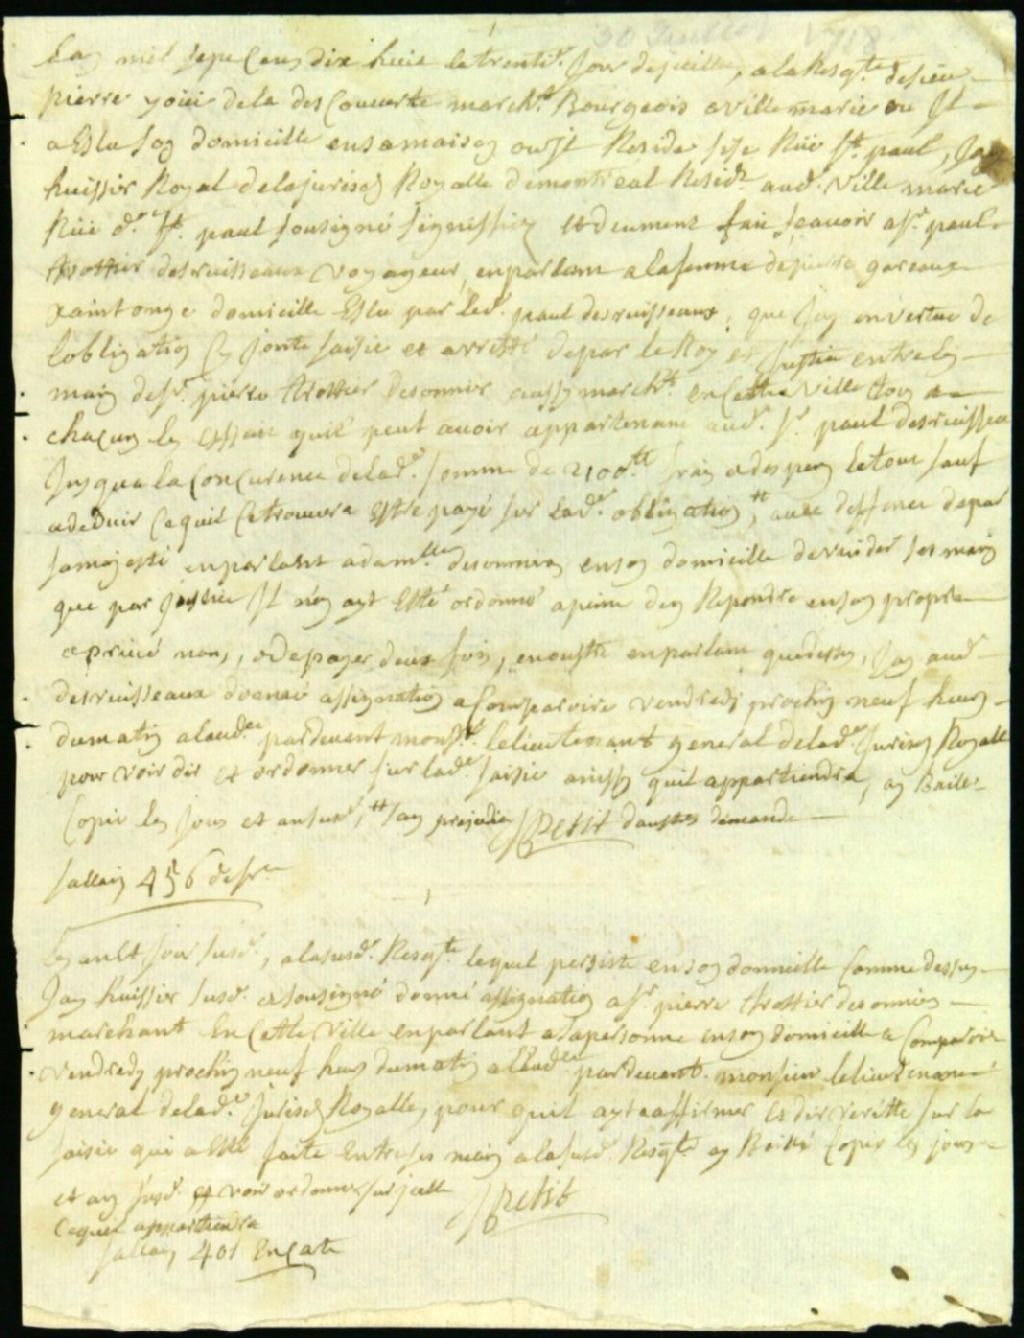 30 Juillet 1718
Lan mil sept Cens dix huit le trenti.e Jour de juillet, a la Resq.te de sieur
pierre you de la descouverte march.t Bourgeois a villemarie ou Il
a Eslu son domicille en sa maison ou il Reside sise Rüe S.t paul, Jay
huissier Royal de la jurison Royalle de montreal Resid.t aud. Ville marie
Rüe d.e S.t paul soussigné signiffié et deument fait scavoir a S.r paul
trottier desruisseaux voyageur, en parlant a la femme de pierre gareau
xaintonge domicille Eslu par led. paul desruisseaux, que Jay en vertue de
lobligation cy jointe saisie et arresté de par le Roy et Justice entre les
mains de S.r pierre trottier desonnier aussy march.t en Cette Ville tous
chacuns les Effets quil peut avoir appartenant aud. S.r paul desruisseaux
Jusqua la Concurence de lad.e somme de 2100.tt frais et depens le tout sauf
a deduir Ce quil Ce trouvera Estre payé sur lad.e obligation, avec deffence de par
sa majesté en parlant a dam.lle desonniers en son domicille de vuider ses mains
que par Justice Il nen ayt Esté ordonné a peine den Repondre en son propre
et privé nom, et de payer deux fois, en outre en parlant que dessus, Jay aud.
desruisseaux donné assignation a Comparoire vendredy prochin neuf heures
du matin a laud.ce pardevant mons.r le lieutenant general de lad.e Jurison Royalle
pour voir dir et ordonner sur lad.e saisie ainssy quil appartiendra, ay Baillé
Copie les Jour et an susd., tt sans prejudice JPetit dautres demande
sallair 456 de fr.ce
Les an et Jour susd., a la susd. Resq.te lequel persiste en son domicille Comme dessus
Jay huissier susd. et soussigné donné assignation a S.r pierre trottier desonniers
marchant En Cette Ville en parlant a sa personne en son domicille a Comparoir
vendredy prochin neuf heures du matin a laud.ce pardevant monsieur le lieutenant
general de lad.e Jurison Royalle, pour quil ayt a affirmer et dir veritté sur la
saisie qui a Esté faite Entre ses mains a la susd. Resq.te ay Baillé Copie les jour
et an susd. et voir ordonner sur jcelle JPetit
Ce quil appartiendra
sallair 40s En Carte